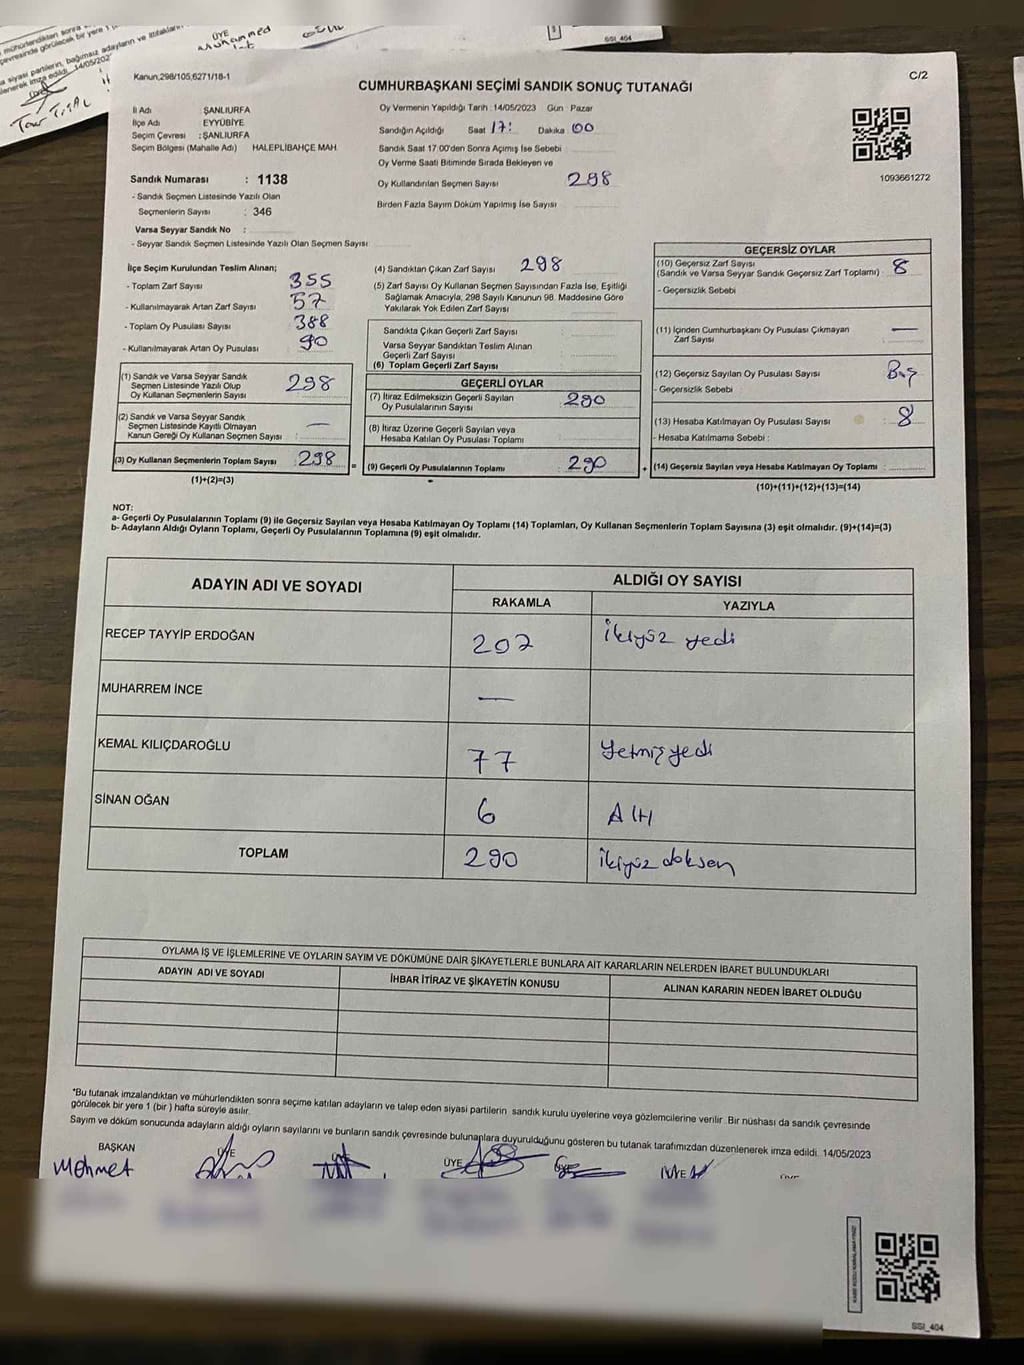 mühürlendikten sonra
çevresinde görülecek bir yere 1
siyasi partilerin, bağımsız adayların ve ittifakların
imza edildi. 14/05/202
ÜYE
Muhammed
SSI_404
Kanun,298/105,6271/18-1
C/2
CUMHURBAŞKANI SEÇİMİ SANDIK SONUÇ TUTANAĞI
İl Adı ŞANLIURFA
İlçe Adı EYYÜBİYE
Seçim Çevresi : ŞANLIURFA
Seçim Bölgesi (Mahalle Adı) HALEPLİBAHÇE MAH.
Sandık Numarası : 1138
- Sandık Seçmen Listesinde Yazılı Olan
Seçmenlerin Sayısı : 346
Varsa Seyyar Sandık No :
- Seyyar Sandık Seçmen Listesinde Yazılı Olan Seçmen Sayısı
Oy Vermenin Yapıldığı Tarih : 14/05/2023 Gün : Pazar
Sandığın Açıldığı Saat 17: Dakika 00
Sandık Saat 17:00'den Sonra Açımış İse Sebebi
Oy Verme Saati Bitiminde Sırada Bekleyen ve
Oy Kullandırılan Seçmen Sayısı 298
Birden Fazla Sayım Döküm Yapılmış İse Sayısı
1093661272
İlçe Seçim Kurulundan Teslim Alınan;
- Toplam Zarf Sayısı 355
- Kullanılmayarak Artan Zarf Sayısı 57
- Toplam Oy Pusulası Sayısı 388
- Kullanılmayarak Artan Oy Pusulası 90
(1) Sandık ve Varsa Seyyar Sandık
Seçmen Listesinde Yazılı Olup
Oy Kullanan Seçmenlerin Sayısı 298
(2) Sandık ve Varsa Seyyar Sandık
Seçmen Listesinde Kayıtlı Olmayan
Kanun Gereği Oy Kullanan Seçmen Sayısı : —
(3) Oy Kullanan Seçmenlerin Toplam Sayısı 298
(1)+(2)=(3)
(4) Sandıktan Çıkan Zarf Sayısı 298
(5) Zarf Sayısı Oy Kullanan Seçmen Sayısından Fazla İse, Eşitliği
Sağlamak Amacıyla, 298 Sayılı Kanunun 98. Maddesine Göre
Yakılarak Yok Edilen Zarf Sayısı
Sandıkta Çıkan Geçerli Zarf Sayısı
Varsa Seyyar Sandıktan Teslim Alınan
Geçerli Zarf Sayısı
(6) Toplam Geçerli Zarf Sayısı
GEÇERLİ OYLAR
(7) İtiraz Edilmeksizin Geçerli Sayılan
Oy Pusulalarının Sayısı 290
(8) İtiraz Üzerine Geçerli Sayılan veya
Hesaba Katılan Oy Pusulası Toplamı
= (9) Geçerli Oy Pusulalarının Toplamı 290 +
GEÇERSİZ OYLAR
(10) Geçersiz Zarf Sayısı
(Sandık ve Varsa Seyyar Sandık Geçersiz Zarf Toplamı) : 8
- Geçersizlik Sebebi
(11) İçinden Cumhurbaşkanı Oy Pusulası Çıkmayan
Zarf Sayısı —
(12) Geçersiz Sayılan Oy Pusulası Sayısı Boş
- Geçersizlik Sebebi
(13) Hesaba Katılmayan Oy Pusulası Sayısı : 8
- Hesaba Katılmama Sebebi :
(14) Geçersiz Sayılan veya Hesaba Katılmayan Oy Toplamı :
(10)+(11)+(12)+(13)=(14)
NOT:
a- Geçerli Oy Pusulalarının Toplamı (9) ile Geçersiz Sayılan veya Hesaba Katılmayan Oy Toplamı (14) Toplamları, Oy Kullanan Seçmenlerin Toplam Sayısına (3) eşit olmalıdır. (9)+(14)=(3)
b- Adayların Aldığı Oyların Toplamı, Geçerli Oy Pusulalarının Toplamına (9) eşit olmalıdır.
ADAYIN ADI VE SOYADI
ALDIĞI OY SAYISI
RAKAMLA YAZIYLA
RECEP TAYYİP ERDOĞAN 207 İkiyüz yedi
MUHARREM İNCE —
KEMAL KILIÇDAROĞLU 77 Yetmişyedi
SİNAN OĞAN 6 Altı
TOPLAM 290 İkiyüz doksan
OYLAMA İŞ VE İŞLEMLERİNE VE OYLARIN SAYIM VE DÖKÜMÜNE DAİR ŞİKAYETLERLE BUNLARA AİT KARARLARIN NELERDEN İBARET BULUNDUKLARI
ADAYIN ADI VE SOYADI
İHBAR İTİRAZ VE ŞİKAYETİN KONUSU
ALINAN KARARIN NEDEN İBARET OLDUĞU
*Bu tutanak imzalandıktan ve mühürlendikten sonra seçime katılan adayların ve talep eden siyasi partilerin sandık kurulu üyelerine veya gözlemcilerine verilir. Bir nüshası da sandık çevresinde
görülecek bir yere 1 (bir ) hafta süreyle asılır.
Sayım ve döküm sonucunda adayların aldığı oyların sayılarını ve bunların sandık çevresinde bulunanlara duyurulduğunu gösteren bu tutanak tarafımızdan düzenlenerek imza edildi. 14/05/2023
BAŞKAN ÜYE ÜYE ÜYE ÜYE
Mehmet
SSI_404